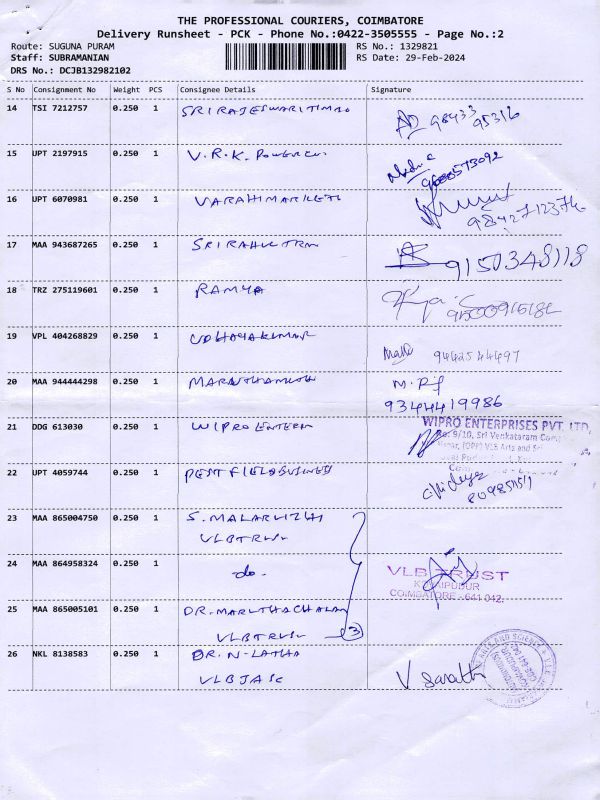 THE PROFESSIONAL COURIERS, COIMBATORE
Delivery Runsheet - PCK - Phone No.:0422-3505555 - Page No.:2
Route: SUGUNA PURAM RS No.: 1329821
Staff: SUBRAMANIAN RS Date: 29-Feb-2024
DRS No.: DCJB132982102
S No Consignment No Weight PCS Consignee Details Signature
14 TSI 7212757 0.250 1 SRI RAJESWARI TIMBO
98433 95316
15 UPT 2197915 0.250 1 V.R.K.
16 UPT 6070981 0.250 1 VARAHI MARKETI
17 MAA 943687265 0.250 1 SRI RAHUL TRN
9150348118
18 TRZ 275119601 0.250 1 RAMYA
19 VPL 404268829 0.250 1 UDHAYAKUMAR
9442544497
20 MAA 944444298 0.250 1
9344419986
21 DDG 613030 0.250 1 WIPRO ENTERR
WIPRO ENTERPRISES PVT. LTD.
9/10, Sri Venkataram
(OPP) VLB Arts and Sri
22 UPT 4059744 0.250 1 PEST FIELD BUSINES
23 MAA 865004750 0.250 1 S. MALARVIZHI
VLB TRUST
24 MAA 864958324 0.250 1 do.
VLB TRUST
KOVAIPUDUR
COIMBATORE - 641 042.
25 MAA 865005101 0.250 1 DR. MARUTHACHALAM
VLB TRUST 3
26 NKL 8138583 0.250 1 DR. N. LATHA
VLBJASC
V Sarath